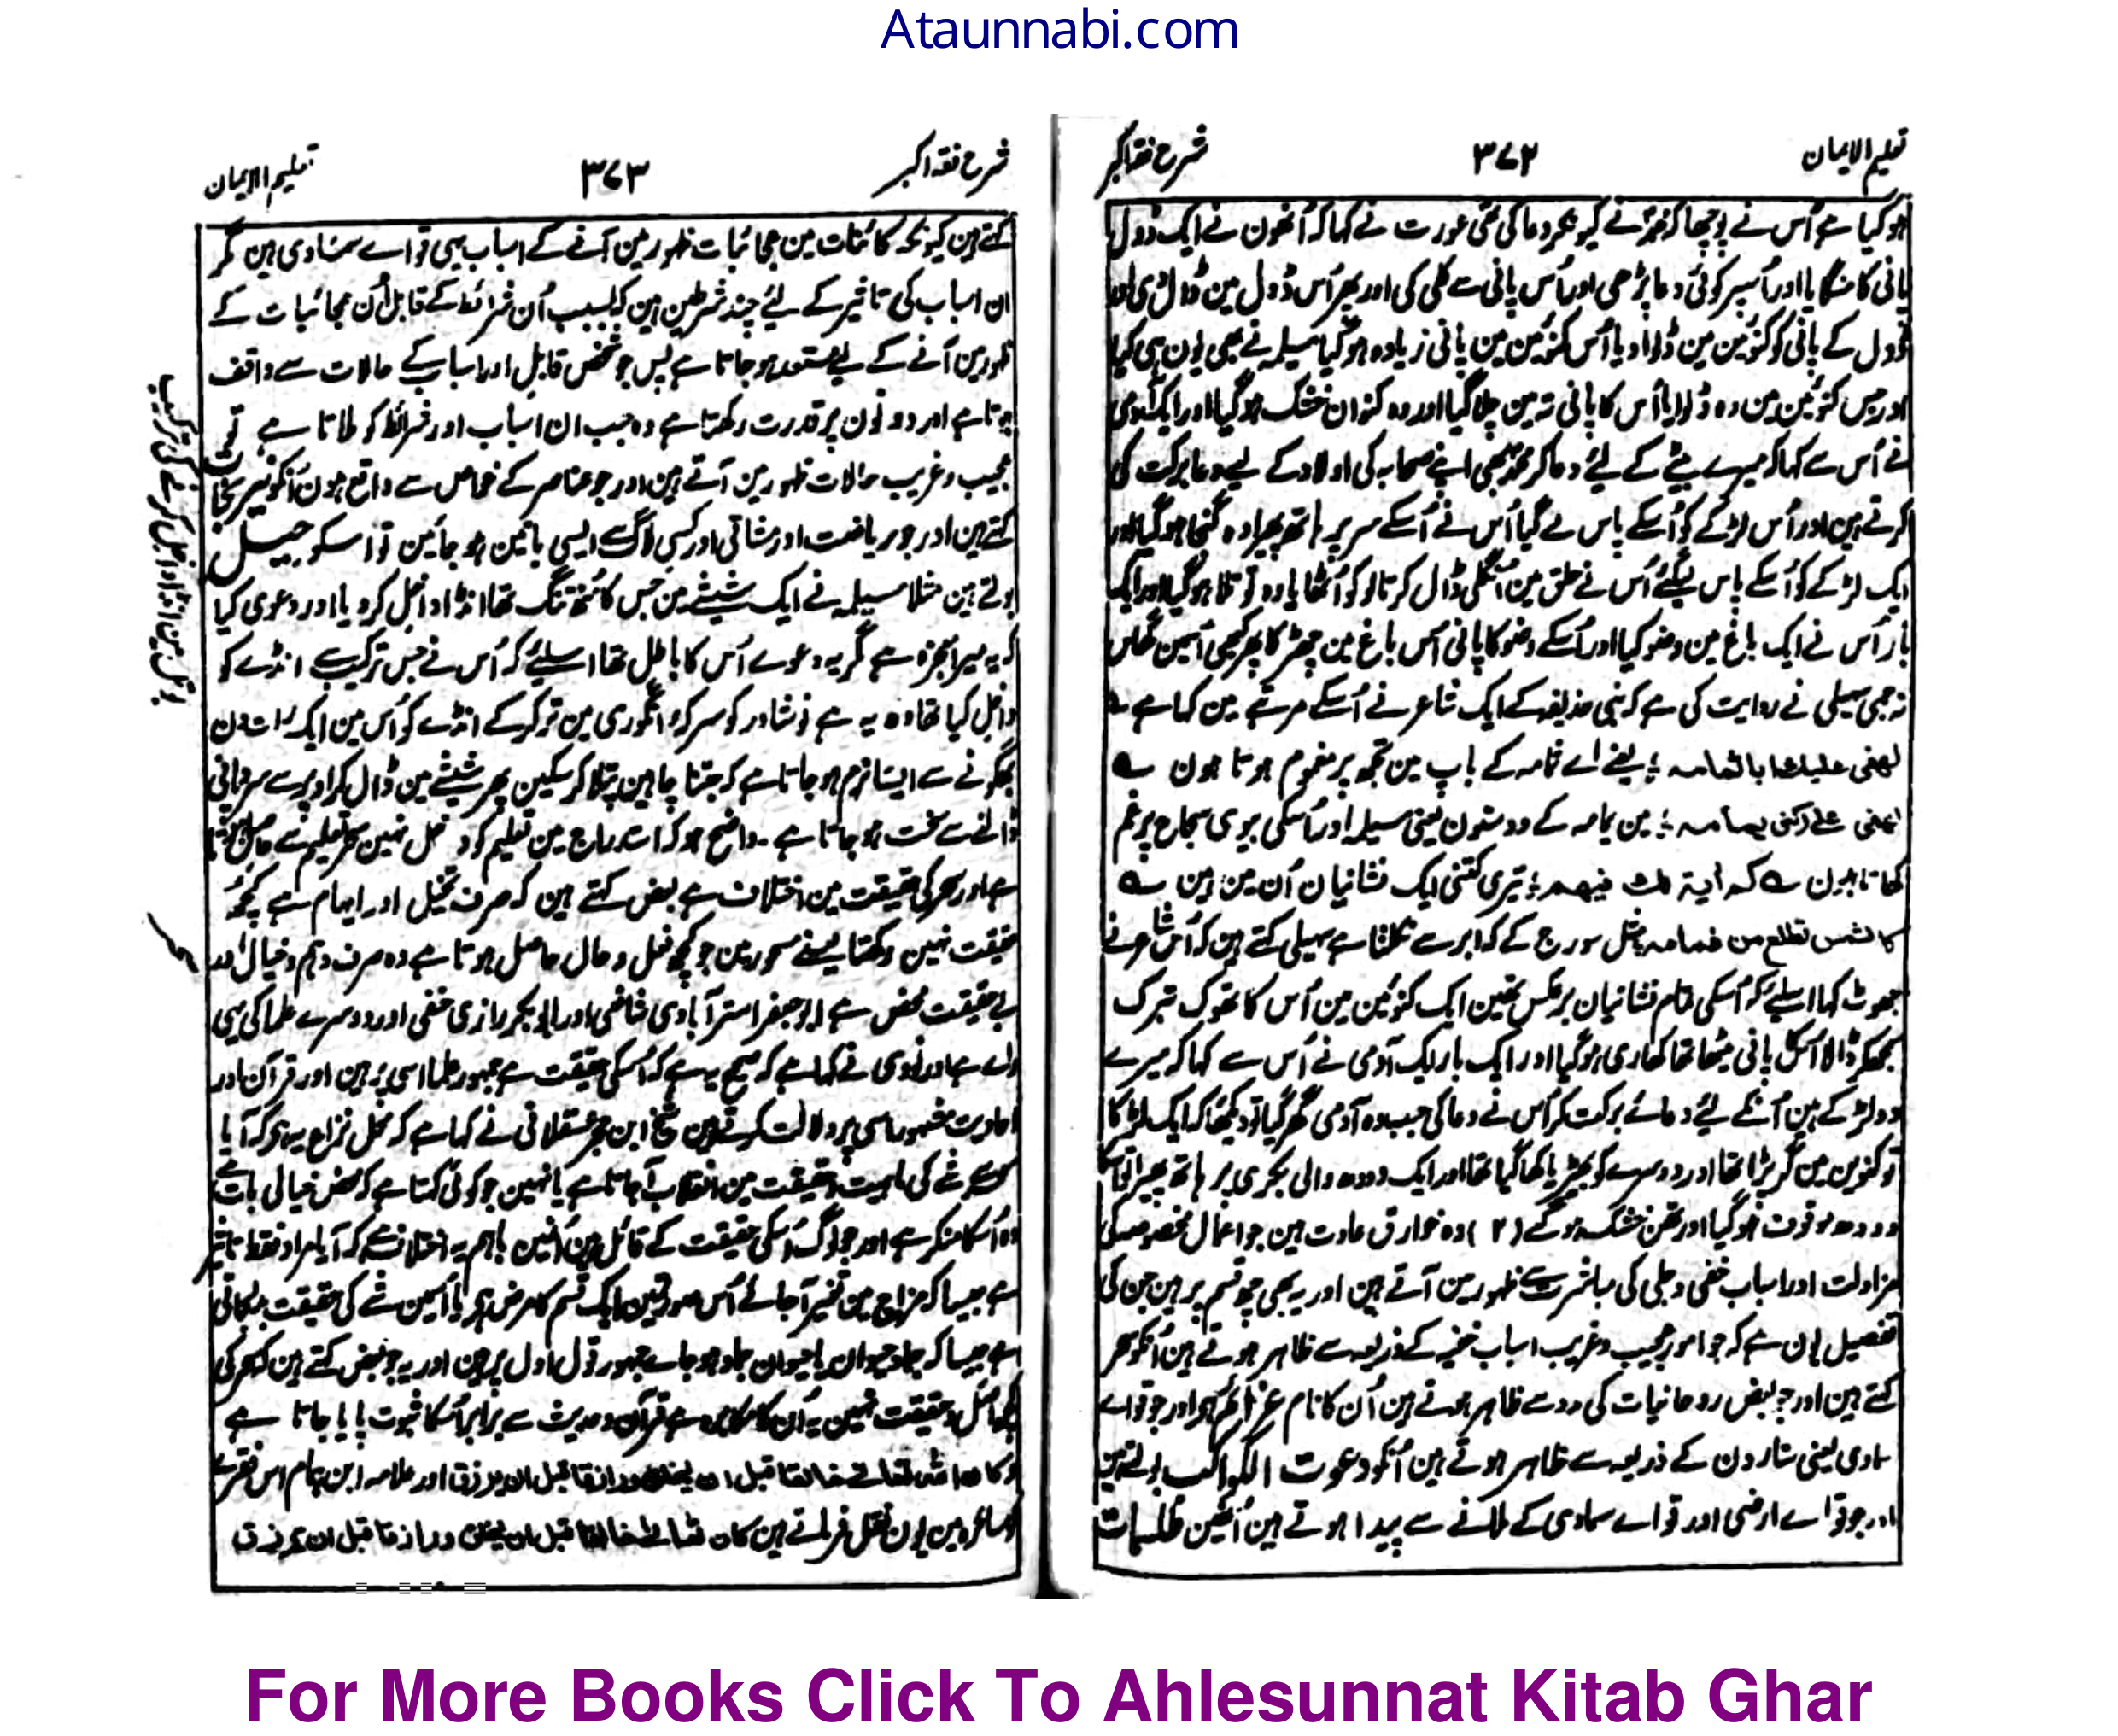 Ataunnabi.com
تعلیم الایمان
۳۷۲
شرح فقہ اکبر
ہو گیا ہے اُس نے پوچھا کہ محمدؐ نے کیونکر دعا کی تھی عورت نے کہا کہ اُنھون نے ایک ڈول
پانی کا منگایا اور اُسپر کوئی دعا پڑھی اور اُس پانی سے کلی کی اور پھر اُس ڈول مین ڈال دی اور
ڈول کے پانی کو کنوئین مین ڈلوا دیا اُس کنوئین مین پانی زیادہ ہو گیا مسیلمہ نے بھی یون ہی کیا
اور جس کنوئین مین وہ ڈلوایا اُس کا پانی تہ مین چلا گیا اور وہ کنوان خشک ہو گیا اور ایک آدمی
نے اُس سے کہا کہ میرے بیٹے کے لیئے دعا کر محمدؐ بھی اپنے صحابہ کی اولاد کے لیے دعا برکت کی
کرتے ہین اور اُس لڑکے کو اُسکے پاس لے گیا اُس نے اُسکے سر پر ہاتھ پھیرا وہ گنجا ہو گیا اور
ایک لڑکے کو اُسکے پاس لیگئے اُس نے حلق مین اُنگلی ڈال کر تالو کو اُٹھایا وہ توتلا ہو گیا اور ایک
بار اُس نے ایک باغ مین وضو کیا اور اُسکے وضو کا پانی اُس باغ مین چھڑکا پھر کبھی اُسمین گھاس
نہ جمی سہیلی نے روایت کی ہے کہ بنی حنیفہ کے ایک شاعر نے اُسکے مرثیے مین کہا ہے ؎
لهفی علیك ابا ثمامه ؛ یعنے اے ثمامہ کے باپ مین تجھ پر مغموم ہوتا ہون ؎
لهفی علے رکنی یمامه ؛ مین یمامہ کے دو ستون یعنی مسیلمہ اور اُسکی بیوی سجاح پر غم
کھاتا ہون ؎ کم آیة لك فیهم ؛ تیری کتنی ایک نشانیان اُن مین ہین ؎
کالشمس تطلع من غمامه ؛ مثل سورج کے کہ ابر سے نکلتا ہے سہیلی کہتے ہین کہ اُس شاعر نے
جھوٹ کہا اسلیئے کہ اُسکی تمام نشانیان برعکس تھین ایک کنوئین مین اُس کا تھوک تبرک
سمجھکر ڈالا اُسکا پانی میٹھا تھا کھاری ہو گیا اور ایک بار ایک آدمی نے اُس سے کہا کہ میرے
دو لڑکے ہین اُنکے لیئے دعائے برکت کر اُس نے دعا کی جب وہ آدمی گھر گیا تو دیکھا کہ ایک لڑکا
تو کنوین مین گر پڑا تھا اور دوسرے کو بھیڑیا کھا گیا تھا اور ایک دودھ والی بکری پر ہاتھ پھیرا تو اُسکا
دودھ موقوف ہو گیا اور تھن خشک ہو گئے (۲) وہ خوارق عادت ہین جو اعمال مخصوصہ کی
مزاولت اور اسباب خفی و جلی کی مباشرت سے ظہور مین آتے ہین اور یہ بھی چھ قسم پر ہین جن کی
تفصیل یون ہے کہ جو امور عجیب و غریب اسباب خفیہ کے ذریعہ سے ظاہر ہوتے ہین اُنکو سحر
کہتے ہین اور جو بعض روحانیات کی مدد سے ظاہر ہوتے ہین اُن کا نام عزائم ہے اور جو قواے
سماوی یعنی ستارون کے ذریعہ سے ظاہر ہوتے ہین اُنکو دعوت الکواکب بولتے ہین
اور جو قواے ارضی اور قواے سماوی کے ملانے سے پیدا ہوتے ہین اُنھین طلسمات
شرح فقہ اکبر
۳۷۳
تعلیم الایمان
کہتے ہین کیونکہ کائنات مین عجائبات ظہور مین آنے کے اسباب یہی قواے سماوی ہین مگر
ان اسباب کی تاثیر کے لیئے چند شرطین ہین کہ بسبب اُن شرائط کے قابل اُن عجائبات کے
ظہور مین آنے کے لیے مستعد ہو جاتا ہے پس جو شخص قابل اور اسباب کے حالات سے واقف
ہوتا ہے اور دونون پر قدرت رکھتا ہے وہ جب ان اسباب اور شرائط کو ملاتا ہے تو
عجیب و غریب حالات ظہور مین آتے ہین اور جو عناصر کے خواص سے واقع ہون اُنکو نیرنجات
کہتے ہین اور جو ریاضت اور مشاقی اور کسی لاگ سے ایسی باتین ہو جائین تو اسکو حیل
بولتے ہین مثلا مسیلمہ نے ایک شیشے مین جس کا مُنھ تنگ تھا انڈا داخل کر دیا اور دعوی کیا
کہ یہ میرا معجزہ ہے مگر یہ دعوے اُس کا باطل تھا اسلیئے کہ اُس نے جس ترکیب سے انڈے کو
داخل کیا تھا وہ یہ ہے نوشادر کو سرکۂ انگوری مین تر کر کے انڈے کو اُس مین ایک رات دن
بھگونے سے ایسا نرم ہو جاتا ہے کہ جتنا چاہین پتلا کر سکین پھر شیشے مین ڈال کر اوپر سے سرد پانی
ڈالنے سے سخت ہو جاتا ہے ۔ واضح ہو کہ استدراج مین تعلیم کو دخل نہین سحر تعلیم سے حاصل ہوتا
ہے اور سحر کی حقیقت مین اختلاف ہے بعض کہتے ہین کہ صرف تخیل اور ایہام ہے کچھ
حقیقت نہین رکھتا یعنے مسحور مین جو کچھ فعل و حال حاصل ہوتا ہے وہ صرف وہم و خیال اور
بے حقیقت محض ہے ابو جعفر استرآبادی شافعی اور ابو بکر رازی حنفی اور دوسرے علما کی یہی
راے ہے اور نووی نے کہا ہے کہ صحیح یہ ہے کہ اُسکی حقیقت ہے جمہور علما اسی پر ہین اور قرآن اور
احادیث مشہورہ اسی پر دلالت کرتے ہین شیخ ابن حجر عسقلانی نے کہا ہے کہ محل نزاع یہ ہے کہ آیا
سحر سے شے کی ماہیت و حقیقت مین انقلاب آ جاتا ہے یا نہین جو کوئی کہتا ہے کہ محض خیالی بات ہے
وہ اُسکا منکر ہے اور جو لوگ اُسکی حقیقت کے قائل ہین اُنمین باہم یہ اختلاف ہے کہ آیا مراد فقط تاثیر
ہے جیسا کہ مزاج مین تغیر آ جائے اُس صورت مین ایک قسم کا مرض ہے یا اُسمین شے کی حقیقت بدل جاتی
ہے جیسا کہ جماد حیوان یا حیوان جماد ہو جاے جمہور قول اول پر ہین اور یہ جو بعض کہتے ہین کہ سحر کی
کچھ اصل و حقیقت نہین یہ اُن کا مکابرہ ہے قرآن و حدیث سے برابر اُسکا ثبوت پایا جاتا ہے
و کان الله تعالے خالقا قبل ان یخلق و رازقا قبل ان یرزق اور علامہ ابن ہمام اس فقرے
کو مسائرہ مین یون نقل فرماتے ہین کان تعالے خالقا قبل ان یخلق و رازقا قبل ان یرزق
بوتل مین انڈا داخل کرنے کی ترکیب
For More Books Click To Ahlesunnat Kitab Ghar